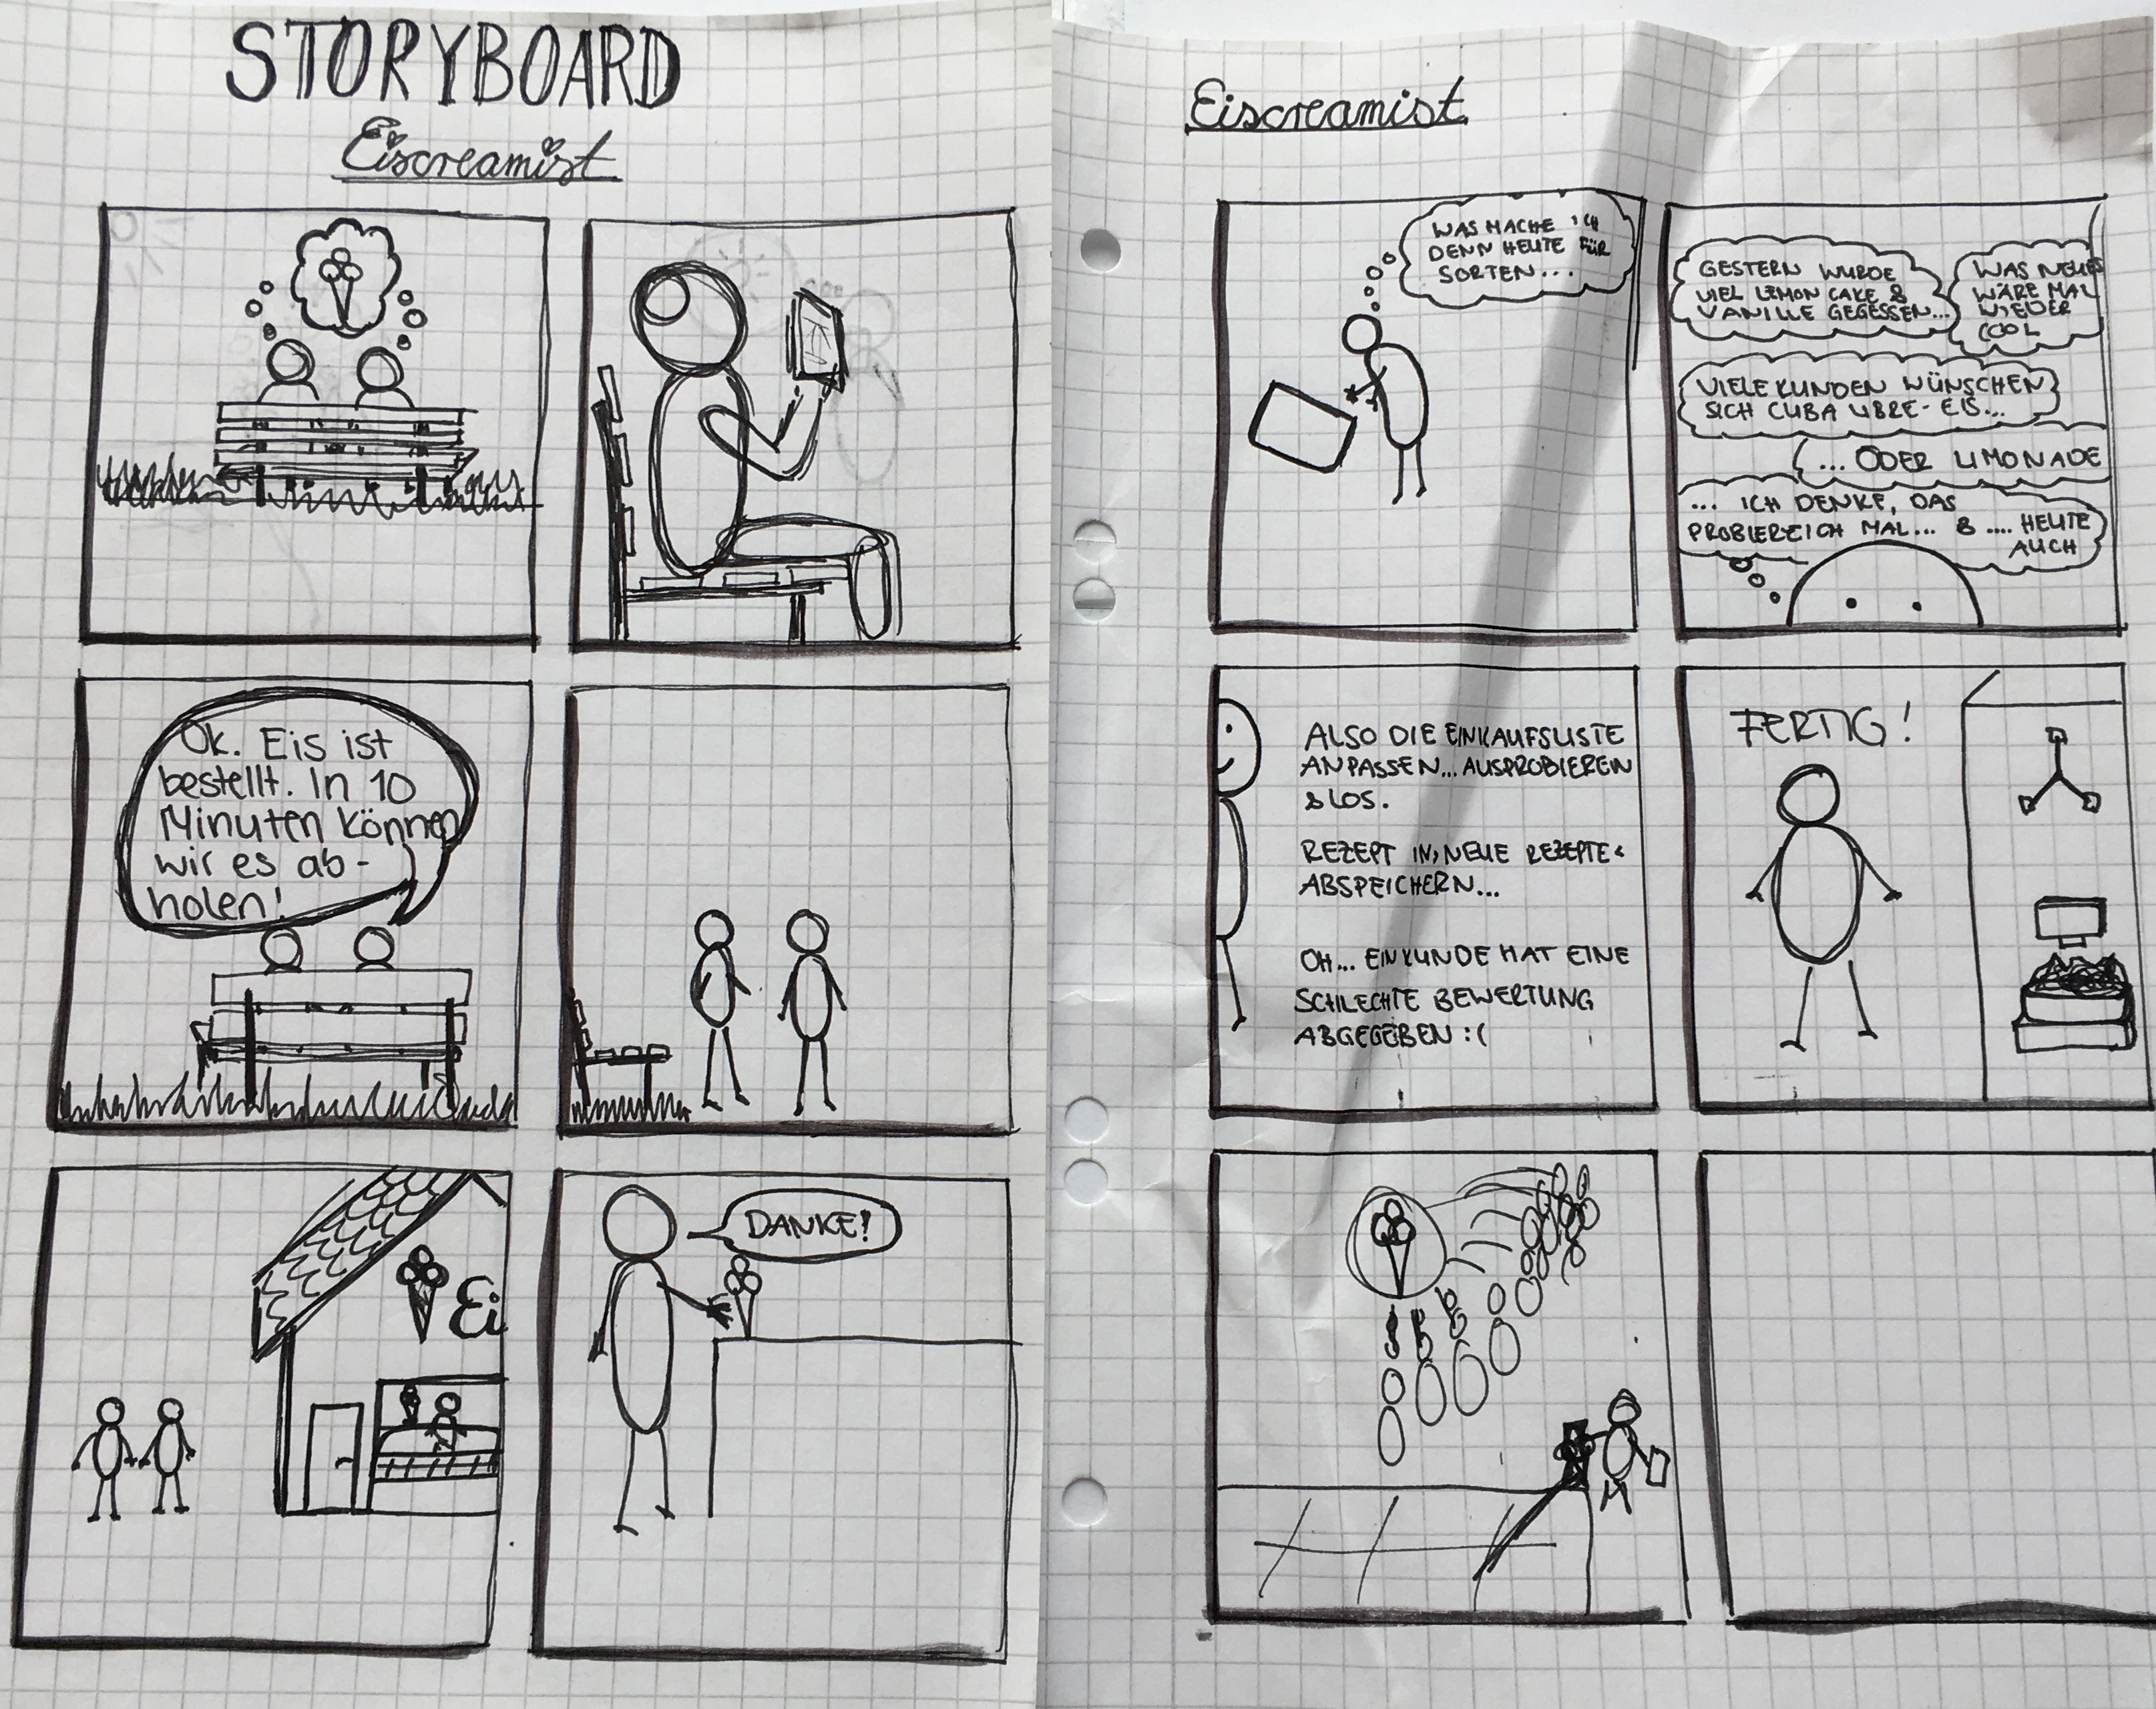 STORYBOARD
Eiscreamist
Ok. Eis ist
bestellt. In 10
Minuten können
wir es ab-
holen!
Ei
DANKE!
Eiscreamist
WAS MACHE ICH
DENN HEUTE FÜR
SORTEN...
GESTERN WURDE
VIEL LEMON CAKE &
VANILLE GEGESSEN...
WAS NEUES
WÄRE MAL
WIEDER
COOL
VIELE KUNDEN WÜNSCHEN
SICH CUBA LIBRE-EIS...
...ODER LIMONADE
... ICH DENKE, DAS
PROBIERE ICH MAL... & .... HEUTE
AUCH
ALSO DIE EINKAUFSLISTE
ANPASSEN... AUSPROBIEREN
& LOS.
REZEPT IN „NEUE REZEPTE“
ABSPEICHERN...
OH... EIN KUNDE HAT EINE
SCHLECHTE BEWERTUNG
ABGEGEBEN :(
FERTIG!